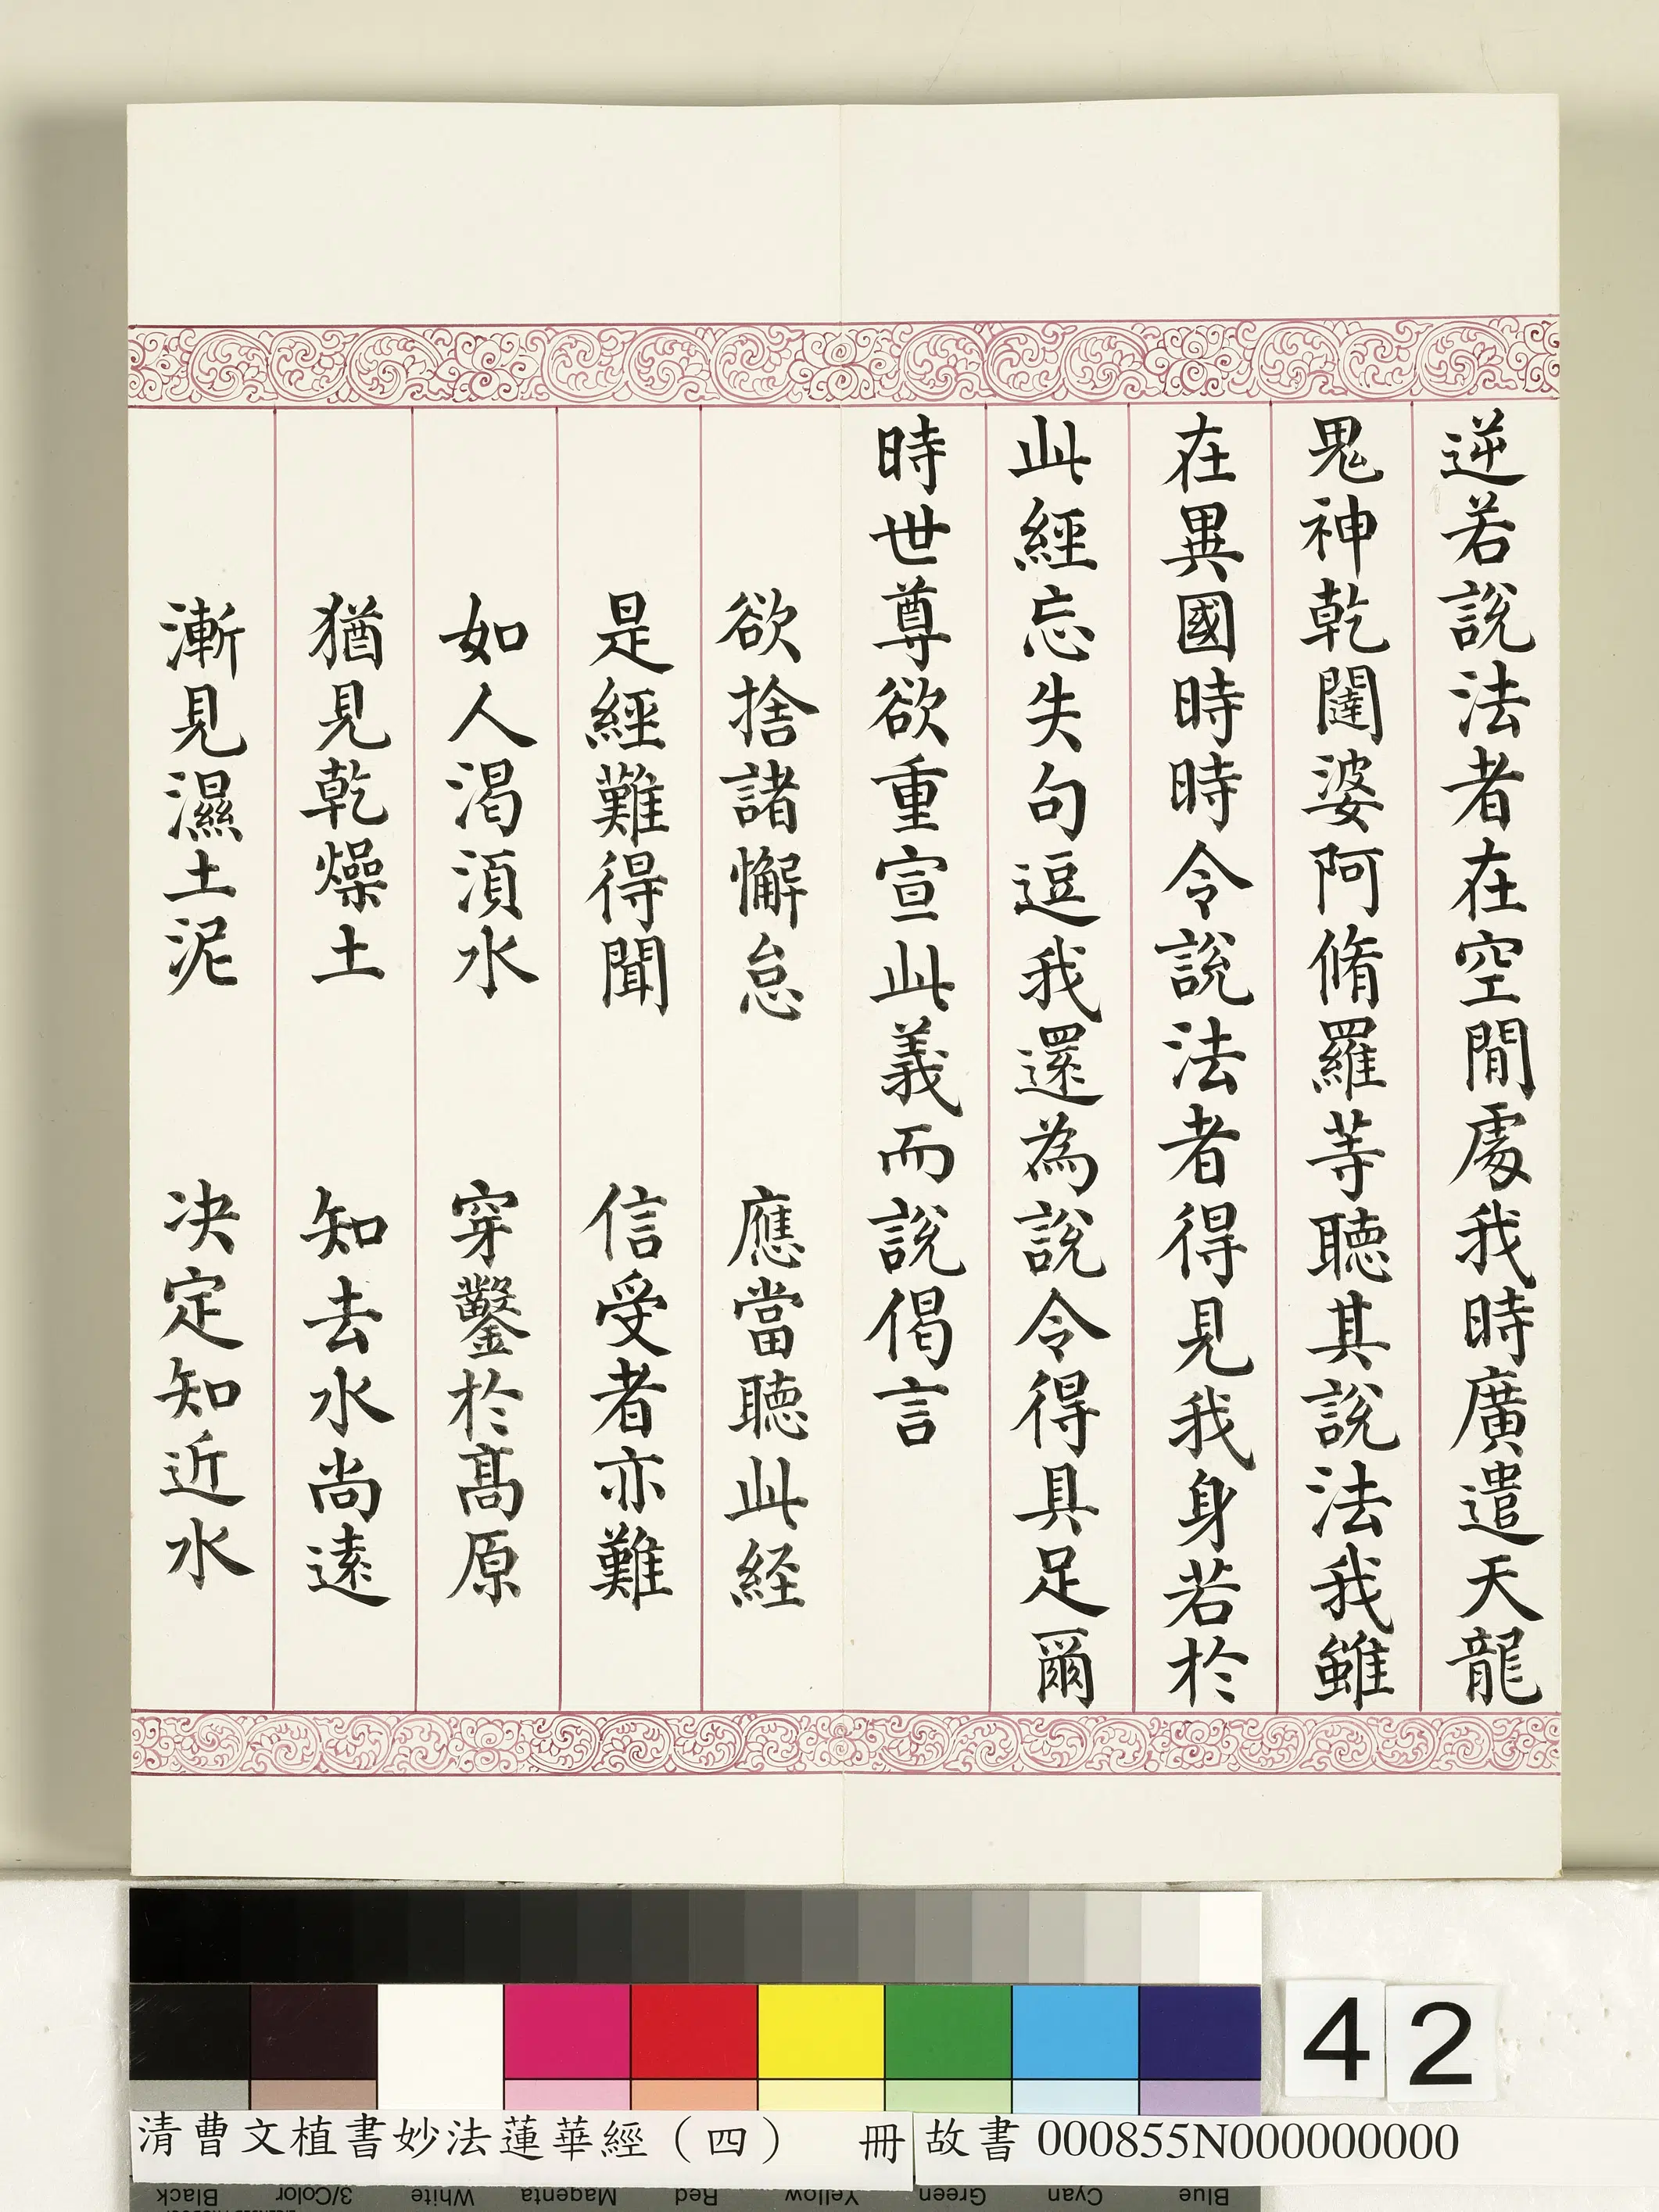 逆若說法者在空閒處我時廣遣天龍
鬼神乾闥婆阿脩羅等聽其說法我雖
在異國時時令說法者得見我身若於
此經忘失句逗我還為說令得具足爾
時世尊欲重宣此義而說偈言
欲捨諸懈怠　應當聽此経
是經難得聞　信受者亦難
如人渴湏水　穿鑿於髙原
猶見乾燥土　知去水尚遠
漸見濕土泥　决定知近水
42
清曹文植書妙法蓮華經（四）　冊
故書 000855N000000000
Black
3/Color
White
Magenta
Red
Yellow
Green
Cyan
Blue